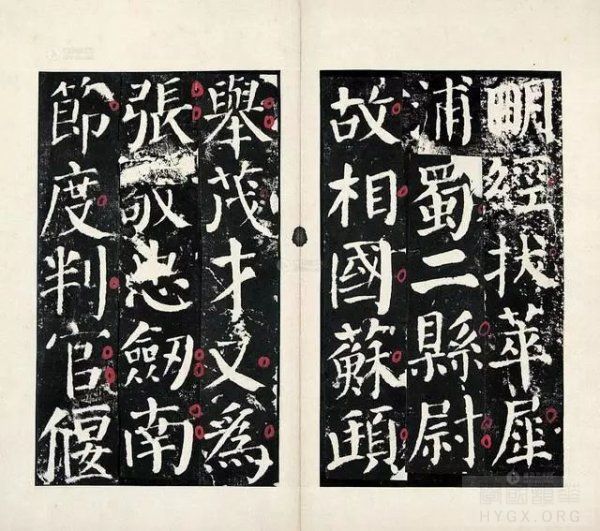 明經拔萃犀
浦蜀二縣尉
故相國蘇頲
舉茂才又爲
張敬忠劒南
節度判官偃
HYGX.ORG